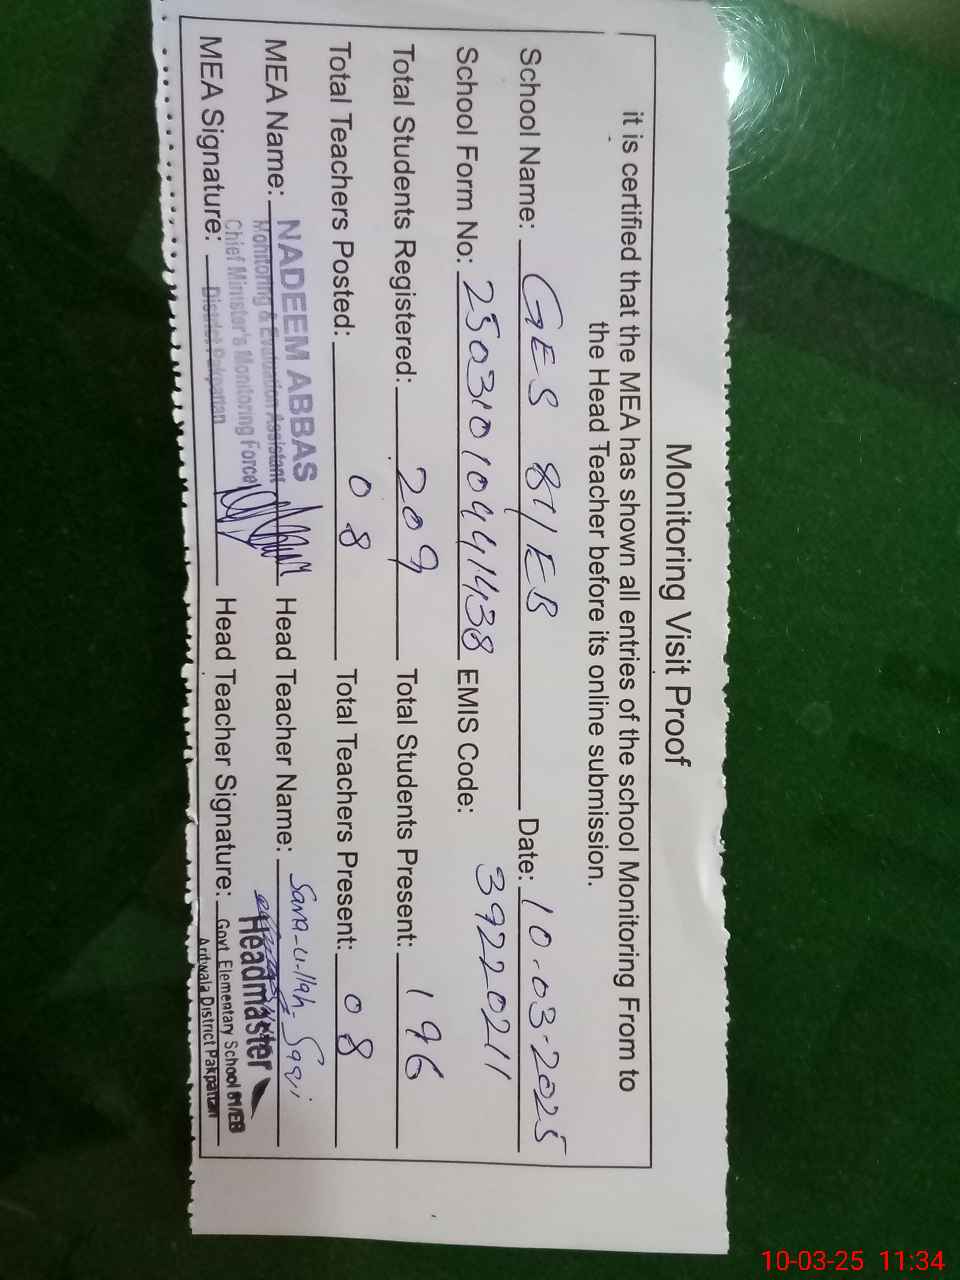 Monitoring Visit Proof
it is certified that the MEA has shown all entries of the school Monitoring From to
the Head Teacher before its online submission.
School Name: GES 81/EB Date: 10-03-2025
School Form No: 25031010441438 EMIS Code: 39220211
Total Students Registered: 209 Total Students Present: 196
Total Teachers Posted: 08 Total Teachers Present: 08
MEA Name: NADEEM ABBAS Head Teacher Name: Sana-u-llah
Monitoring & Evaluation Assistant
Chief Minister's Monitoring Force
Headmaster
MEA Signature: District Pakpattan Head Teacher Signature: Govt Elementary School 81/EB
District Pakpattan
10-03-25 11:34